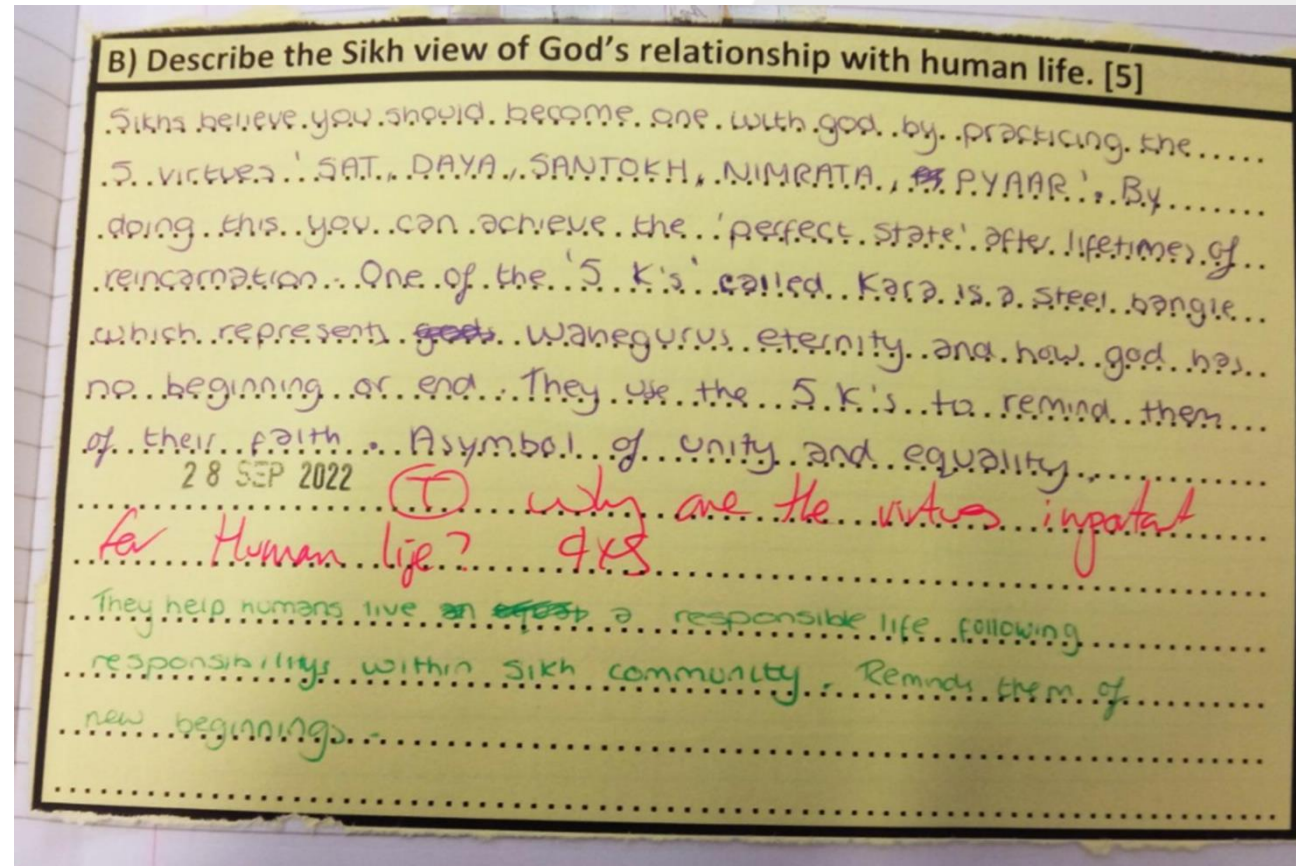 B) Describe the Sikh view of God's relationship with human life. [5]
Sikhs believe you should become one with god by practicing the
5 virtues 'SAT, DAYA, SANTOKH, NIMRATA, PYAAR'. By
doing this you can achieve the 'perfect state' after lifetimes of
reincarnation. One of the '5 K's' called Kara is a steel bangle
which represents wahegurus eternity and how god has
no beginning or end. They use the 5 K's to remind them
of their faith. A symbol of unity and equality.
28 SEP 2022 T why are the virtues
for Human life?
They help humans live a responsible life following
responsibilitys within Sikh community. Reminds them of
new beginnings.